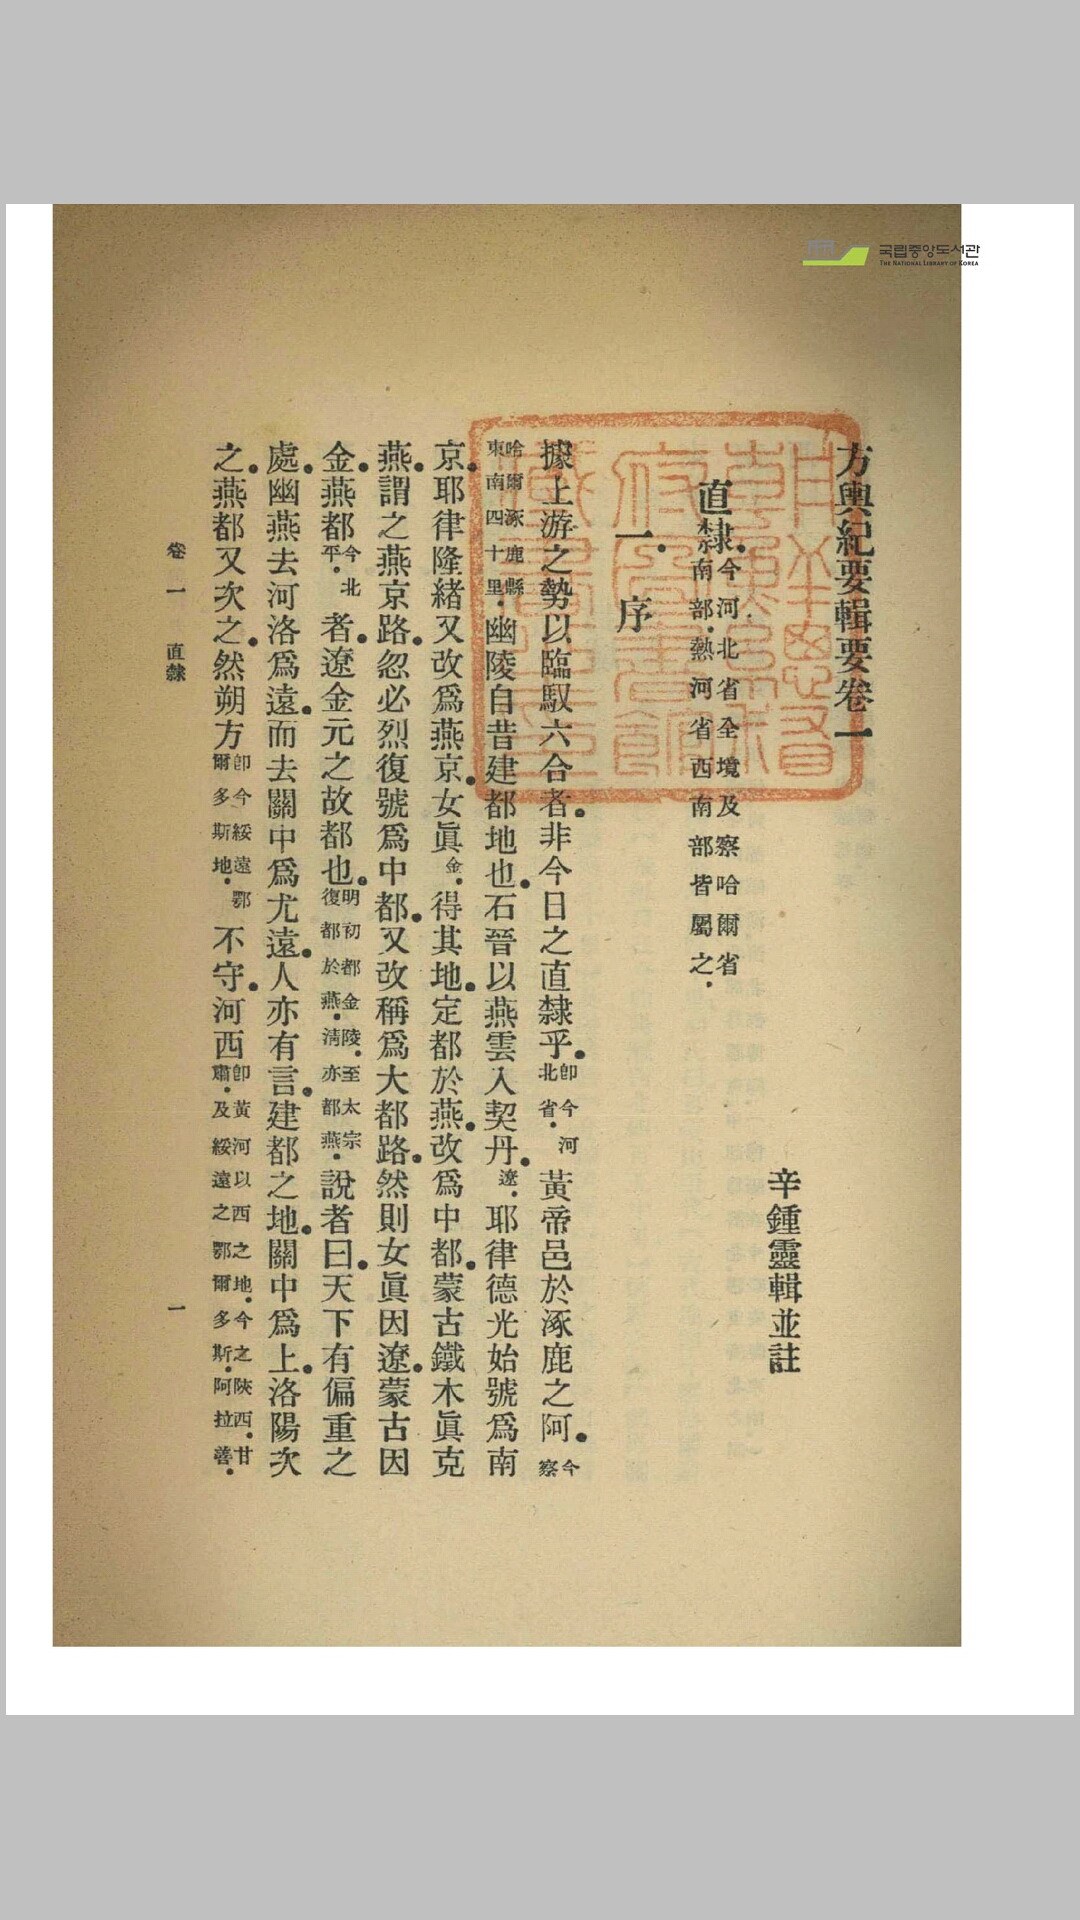 국립중앙도서관
THE NATIONAL LIBRARY OF KOREA
方輿紀要輯要卷一
辛鍾靈輯並註
直隸．今河北省全境及察哈爾省南部．熱河省西南部皆屬之．
一．序
據上游之勢以臨馭六合者．非今日之直隸乎．卽今河北省．黃帝邑於涿鹿之阿．今察
哈爾涿鹿縣東南四十里．幽陵自昔建都地也．石晉以燕雲入契丹．遼．耶律德光始號爲南
京．耶律隆緒又改爲燕京．女眞金．得其地．定都於燕．改爲中都．蒙古鐵木眞克
燕．謂之燕京路．忽必烈復號爲中都．又改稱爲大都路．然則女眞因遼．蒙古因
金．燕都今北平．者．遼金元之故都也．明初都金陵．至太宗復都於燕．淸亦都燕．說者曰．天下有偏重之
處．幽燕去河洛爲遠．而去關中爲尤遠．人亦有言．建都之地．關中爲上．洛陽次
之．燕都又次之．然朔方卽今綏遠鄂爾多斯地．不守．河西卽黃河以西之地．今之陝西．甘肅．及綏遠之鄂爾多斯．阿拉善．
卷一 直隸 一
朝鮮總督府圖書館藏書之印